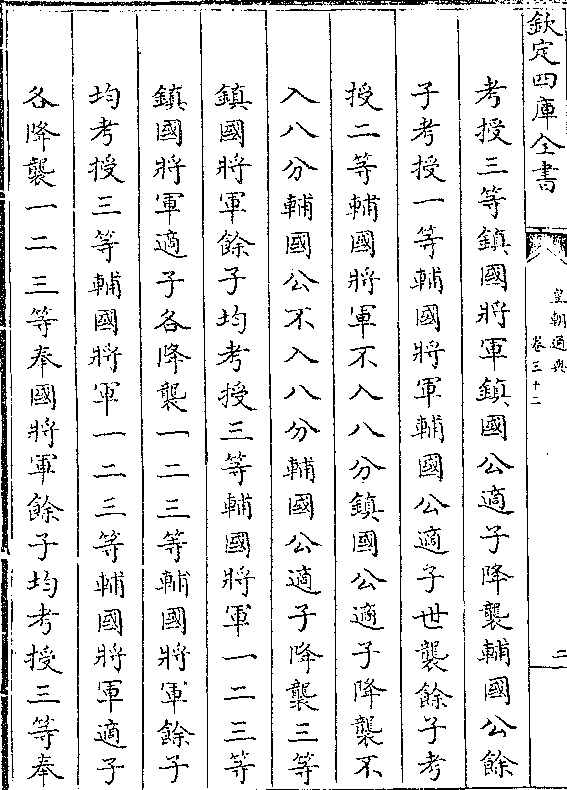 欽定四庫全書
皇朝通典
卷三十二
二
考授三等鎮國將軍鎮國公適子降襲輔國公餘
子考授一等輔國將軍輔國公適子世襲餘子考
授二等輔國將軍不入八分鎮國公適子降襲不
入八分輔國公不入八分輔國公適子降襲三等
鎮國將軍餘子均考授三等輔國將軍一二三等
鎮國將軍適子各降襲一二三等輔國將軍餘子
均考授三等輔國將軍一二三等輔國將軍適子
各降襲一二三等奉國將軍餘子均考授三等奉